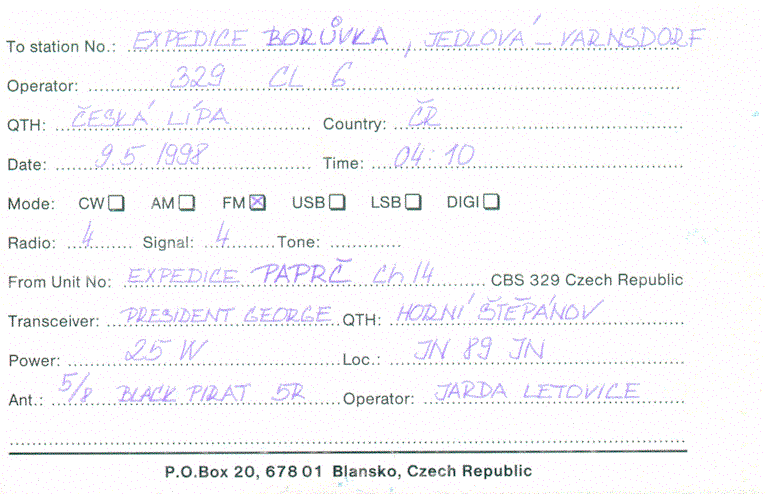 To station No.: EXPEDICE BORŮVKA, JEDLOVÁ – VARNSDORF
Operator: 329 CL 6
QTH: ČESKÁ LÍPA Country: ČR
Date: 9.5.1998 Time: 04:10
Mode: CW☐ AM☐ FM☒ USB☐ LSB☐ DIGI☐
Radio: 4 Signal: 4 Tone:
From Unit No: EXPEDICE PAPRČ Ch 14 CBS 329 Czech Republic
Transceiver: PRESIDENT GEORGE QTH: HORNÍ ŠTĚPÁNOV
Power: 25 W Loc.: JN 89 JN
Ant.: 5/8 BLACK PIRAT 5R Operator: JARDA LETOVICE
P.O.Box 20, 678 01 Blansko, Czech Republic